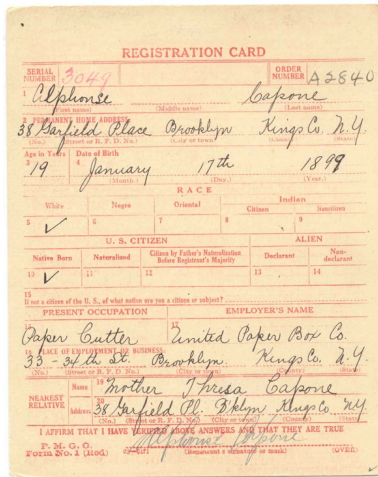 REGISTRATION CARD
SERIAL NUMBER 3049 ORDER NUMBER A2840
1 Alphonse Capone
(First name) (Middle name) (Last name)
2 PERMANENT HOME ADDRESS:
38 Garfield Place Brooklyn Kings Co. N.Y.
(No.) (Street or R. F. D. No.) (City or town) (County) (State)
Age in Years Date of Birth
3 19 4 January 17th 1899
(Month.) (Day.) (Year.)
RACE
White Negro Oriental Indian
Citizen Noncitizen
5 ✓ 6 7 8 9
U. S. CITIZEN ALIEN
Native Born Naturalized Citizen by Father's Naturalization Before Registrant's Majority Declarant Non-declarant
10 ✓ 11 12 13 14
15
If not a citizen of the U. S., of what nation are you a citizen or subject?
PRESENT OCCUPATION EMPLOYER'S NAME
16 Paper Cutter 17 United Paper Box Co.
18 PLACE OF EMPLOYMENT OR BUSINESS
33 - 34th St. Brooklyn. Kings Co. N.Y.
(No.) (Street or R. F. D. No.) (City or town) (County) (State)
NEAREST RELATIVE
Name 19 Mother Thresa Capone
Address 20 38 Garfield Pl. Bklyn Kings Co. N.Y.
(No.) (Street or R. F. D. No.) (City or town) (County) (State)
I AFFIRM THAT I HAVE VERIFIED ABOVE ANSWERS AND THAT THEY ARE TRUE
P. M. G. O.
Form No. 1 (Red) Alphonse Capone
(Registrant's signature or mark) (OVER)